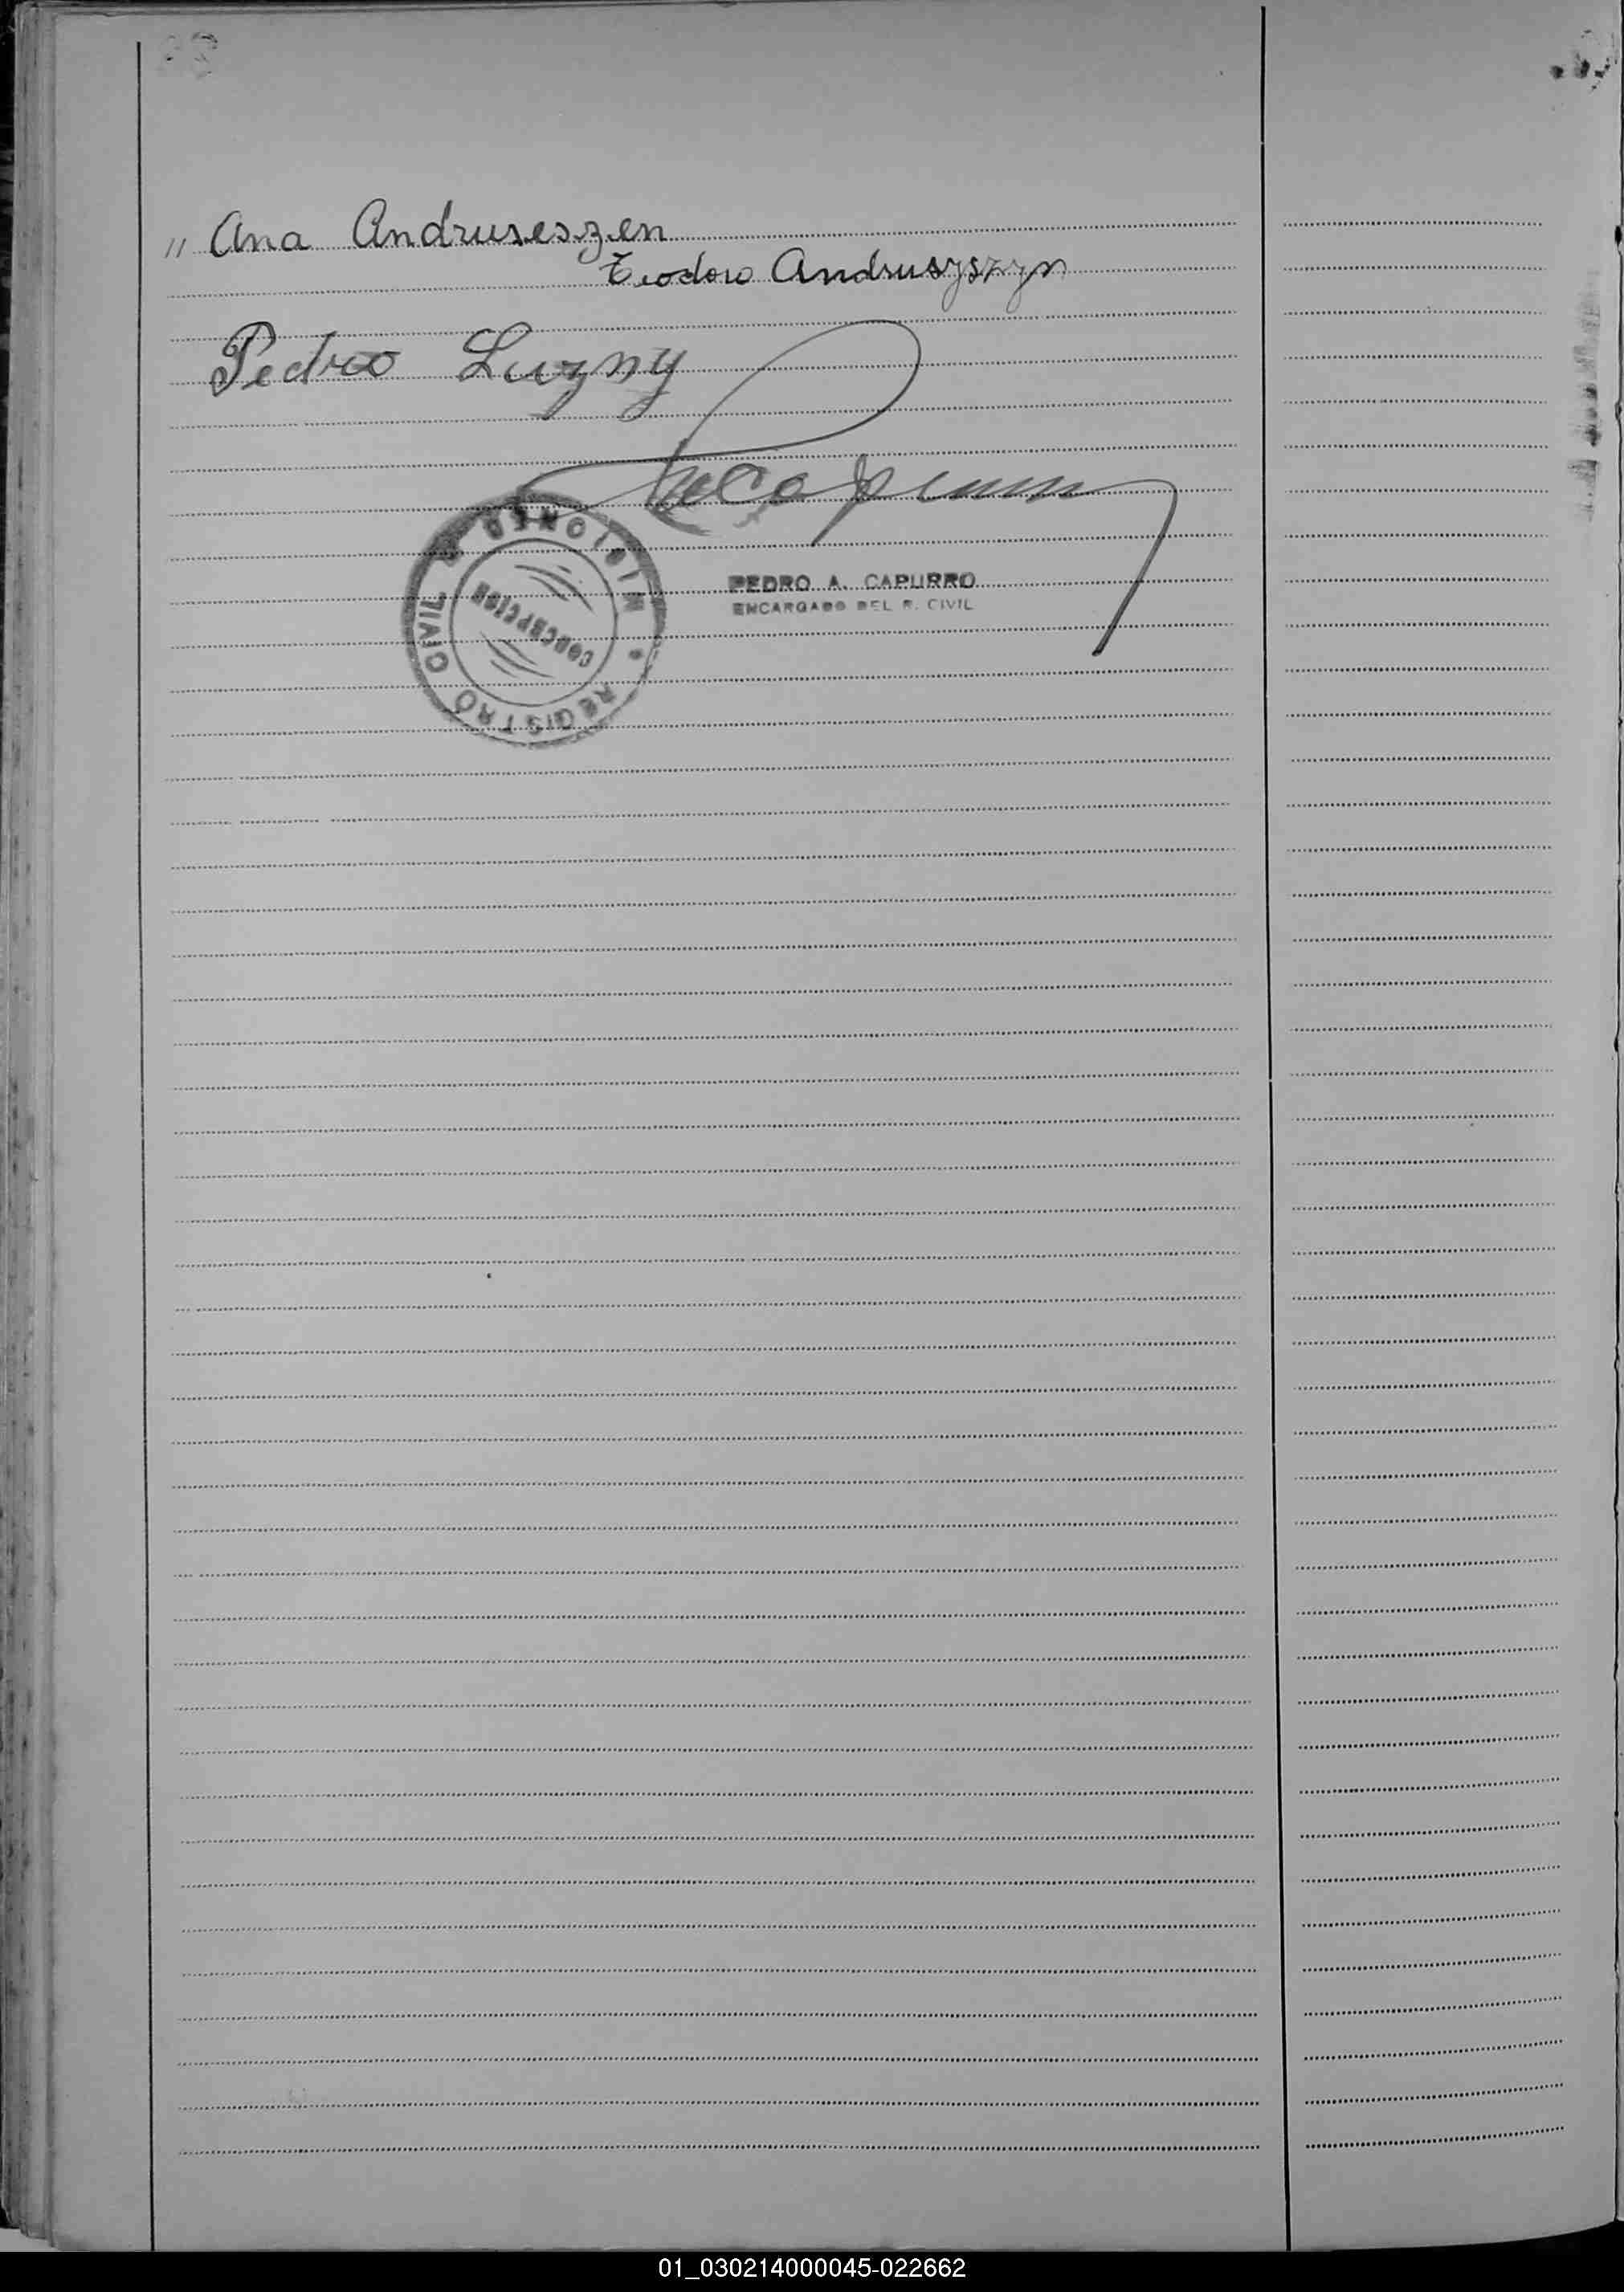 " Ana Andruseszen
Teodoro Andrusyszyn
Pedro Luzny
REGISTRO CIVIL
MISIONES
CONCEPCION
PEDRO A. CAPURRO
ENCARGADO DEL R. CIVIL
01_030214000045-022662